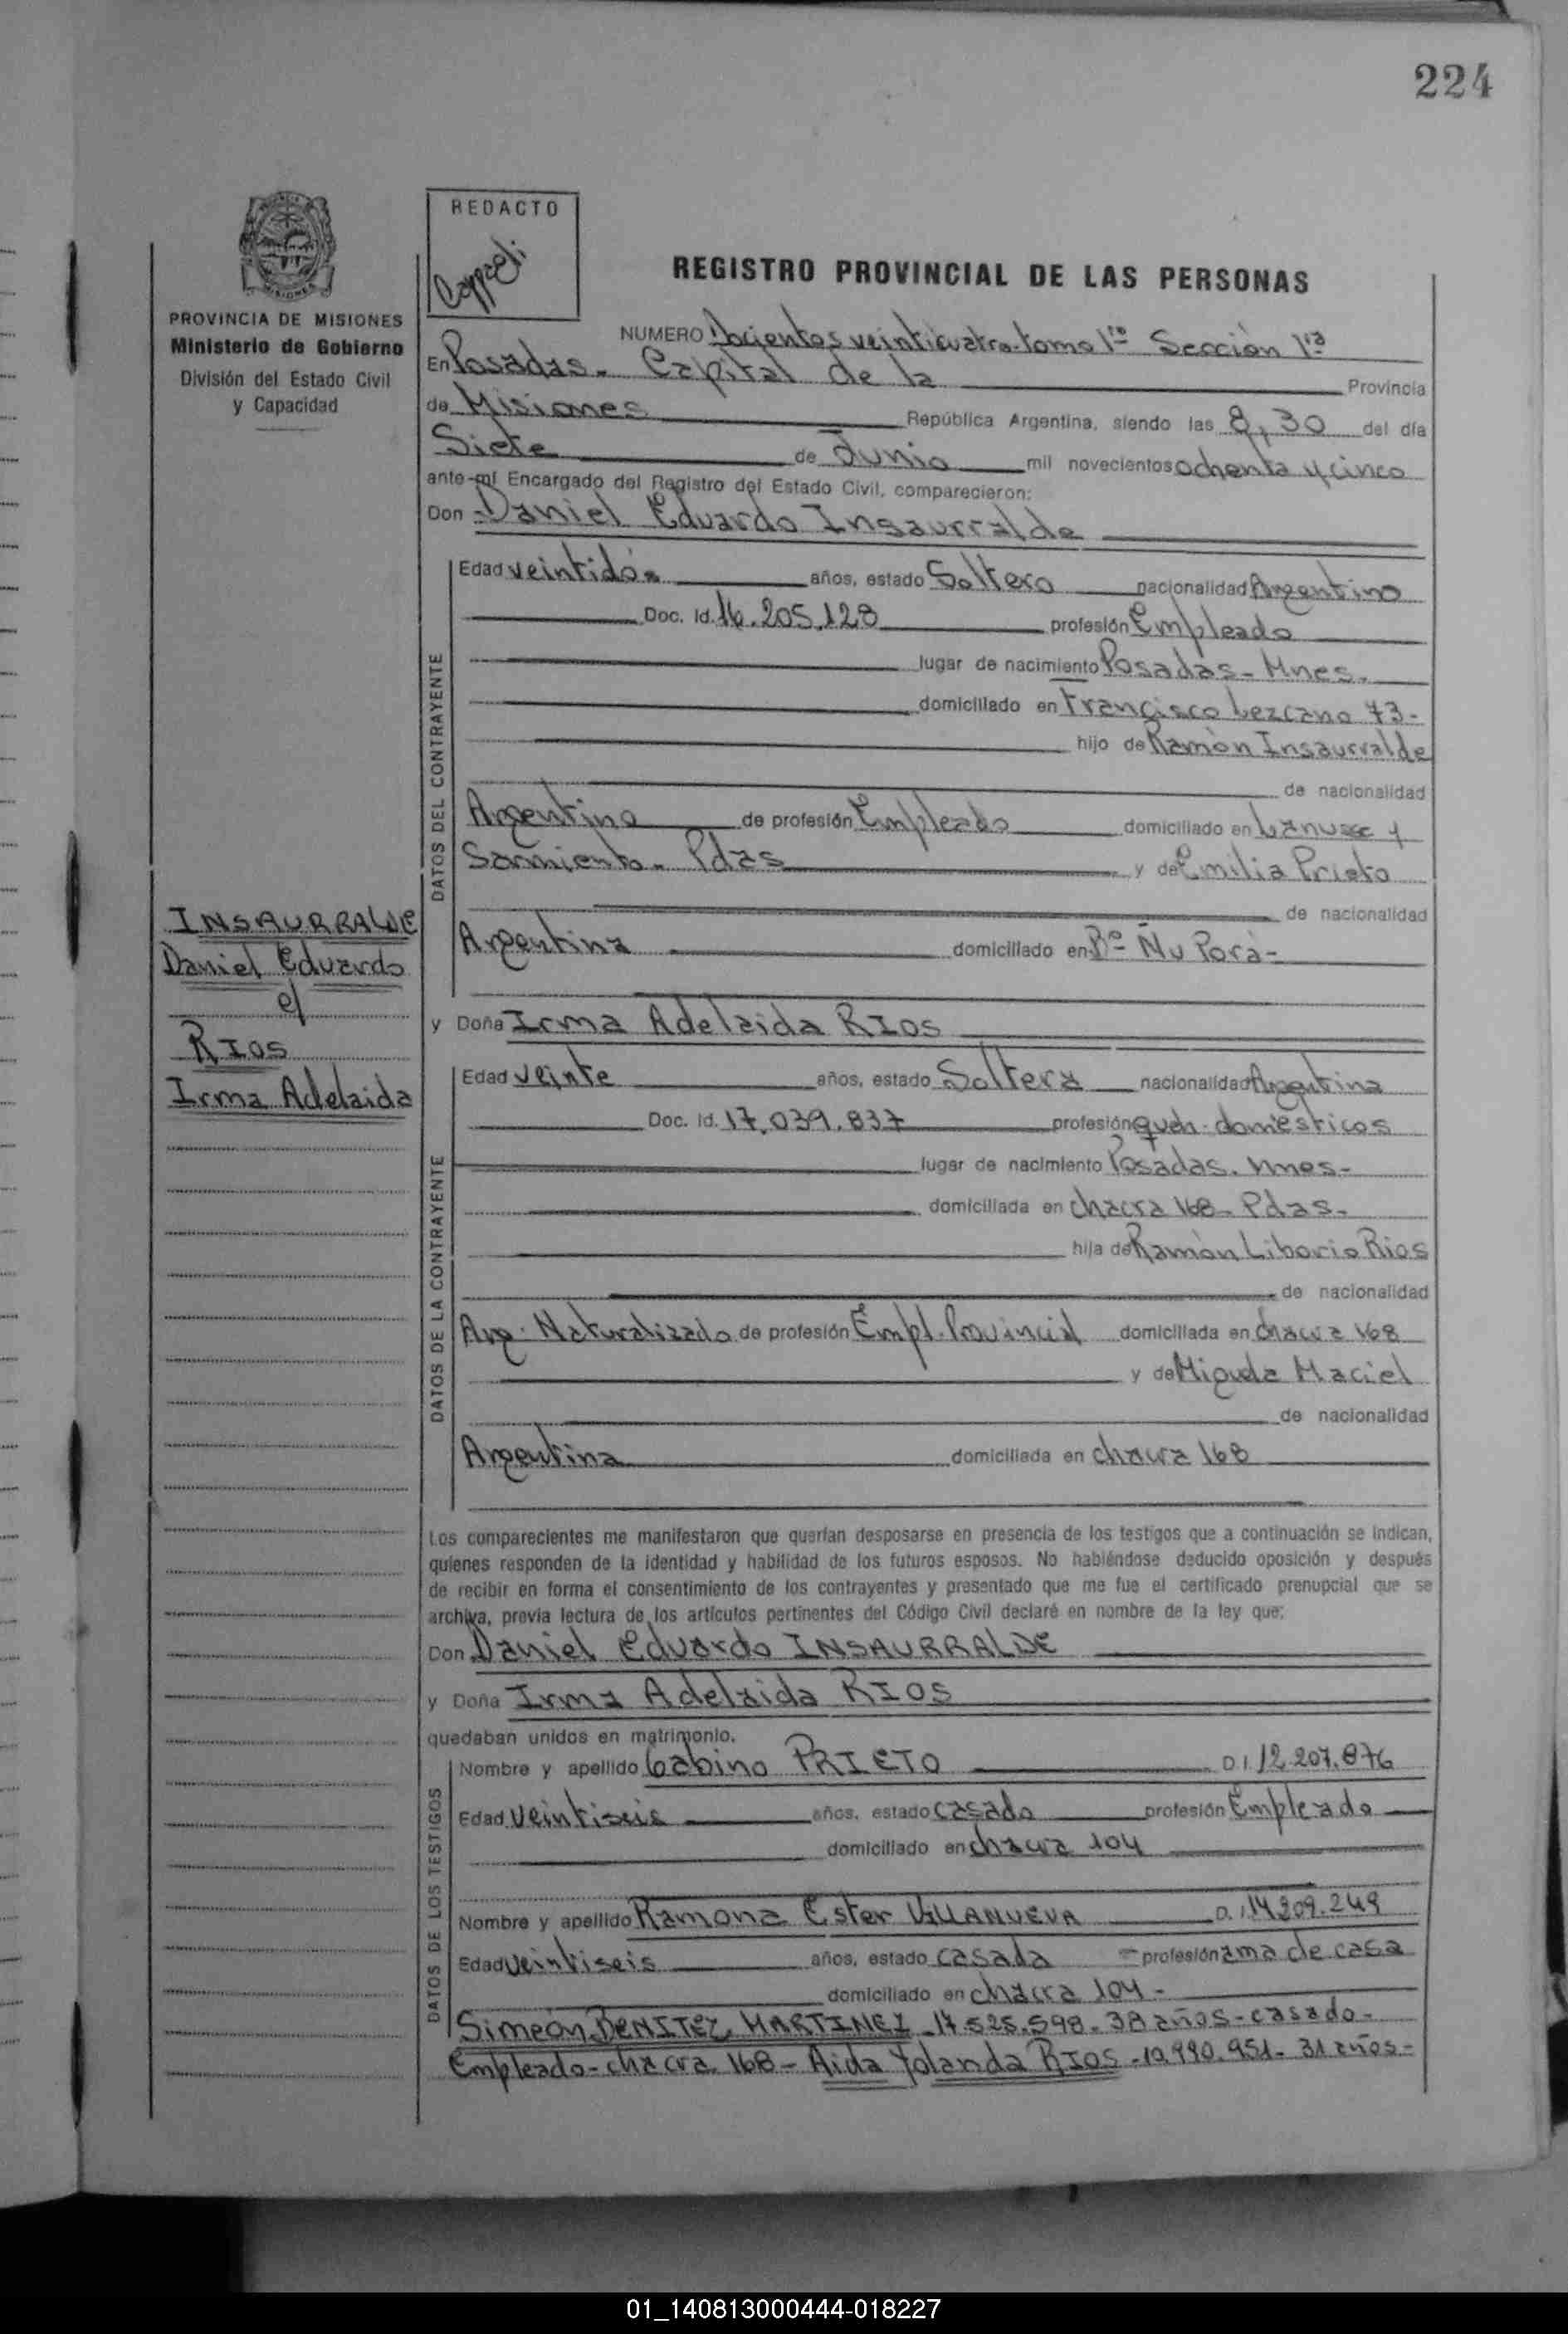 224
REDACTO
MISIONES
PROVINCIA DE MISIONES
Ministerio de Gobierno
División del Estado Civil
y Capacidad
REGISTRO PROVINCIAL DE LAS PERSONAS
NUMERO Docientos veinticuatro-tomo 1ro Sección 1ra
En Posadas. Capital de la Provincia
de Misiones República Argentina, siendo las 8,30 del día
Siete de Junio mil novecientos ochenta y cinco
ante-mí Encargado del Registro del Estado Civil, comparecieron:
Don Daniel Eduardo Insaurralde
DATOS DEL CONTRAYENTE
Edad veintidós años, estado Soltero nacionalidad Argentino
Doc. Id. 16.205.128 profesión Empleado
lugar de nacimiento Posadas-Mnes.
domiciliado en Francisco Lezcano 73-
hijo de Ramón Insaurralde
de nacionalidad
Argentino de profesión Empleado domiciliado en Lanusse y
Sarmiento. Pdas y de Emilia Prieto
de nacionalidad
Argentina domiciliado en Bº- Ñu Porá-
INSAURRALDE
Daniel Eduardo
c/
RIOS
Irma Adelaida
y Doña Irma Adelaida RIOS
DATOS DE LA CONTRAYENTE
Edad veinte años, estado Soltera nacionalidad Argentina
Doc. Id. 17.039.837 profesión queh. domésticos
lugar de nacimiento Posadas. Mnes-
domiciliada en chacra 168- Pdas-
hija de Ramón Liborio Rios
de nacionalidad
Arg. Naturalizado de profesión Empl. Provincial domiciliada en chacra 168
y de Miguela Maciel
de nacionalidad
Argentina domiciliada en chacra 168
Los comparecientes me manifestaron que querían desposarse en presencia de los testigos que a continuación se indican,
quienes responden de la identidad y habilidad de los futuros esposos. No habiéndose deducido oposición y después
de recibir en forma el consentimiento de los contrayentes y presentado que me fue el certificado prenupcial que se
archiva, previa lectura de los artículos pertinentes del Código Civil declaré en nombre de la ley que:
Don Daniel Eduardo INSAURRALDE
y Doña Irma Adelaida RIOS
quedaban unidos en matrimonio.
DATOS DE LOS TESTIGOS
Nombre y apellido Gabino PRIETO D.I. 12.207.876
Edad veintiseis años, estado casado profesión Empleado
domiciliado en chacra 104
Nombre y apellido Ramona Ester VILLANUEVA D.I. 14.209.249
Edad veintiseis años, estado casada profesión ama de casa
domiciliado en chacra 104-
Simeón BENITEZ MARTINEZ-17.525.598-38 años-casado-
Empleado-chacra 168-Aida Yolanda RIOS-10.990.951-31 años-
01_140813000444-018227